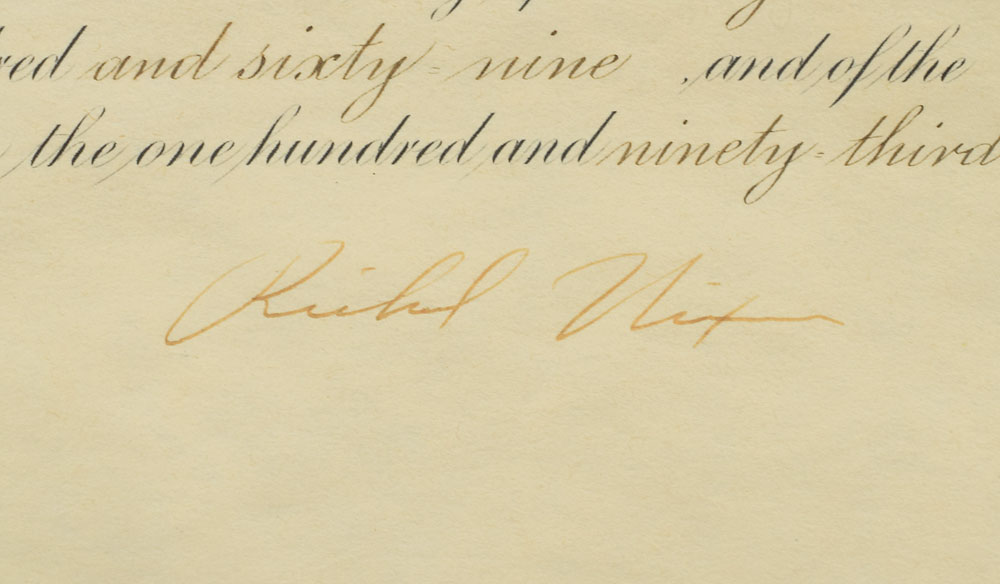 red and sixty-nine , and of the
the one hundred and ninety-third
Richard Nixon